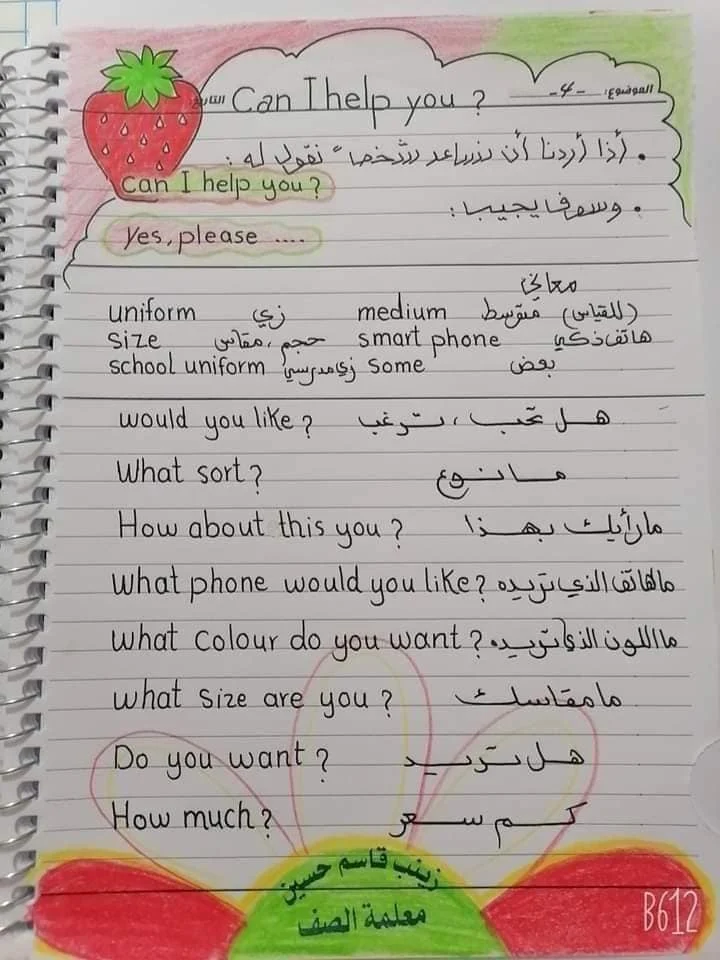 الموضوع: -٤- Can I help you ?
. أذا أردنا أن نساعد شخصاً نقول له :
Can I help you?
. وسوف يجيب :
Yes, please ....
معاني
uniform زي medium متوسط (للقياس)
Size حجم ، مقاس smart phone هاتف ذكي
school uniform زي مدرسي some بعض
would you like? هل تحب ، ترغب
What sort? ما نوع
How about this you? ما رأيك بهذا
What phone would you like? ما هاتف الذي تريده
What colour do you want? ما اللون الذي تريده
what size are you? ما مقاسك
Do you want? هل تريد
How much? كم سعر
زينب قاسم حسين
معلمة الصف
B612